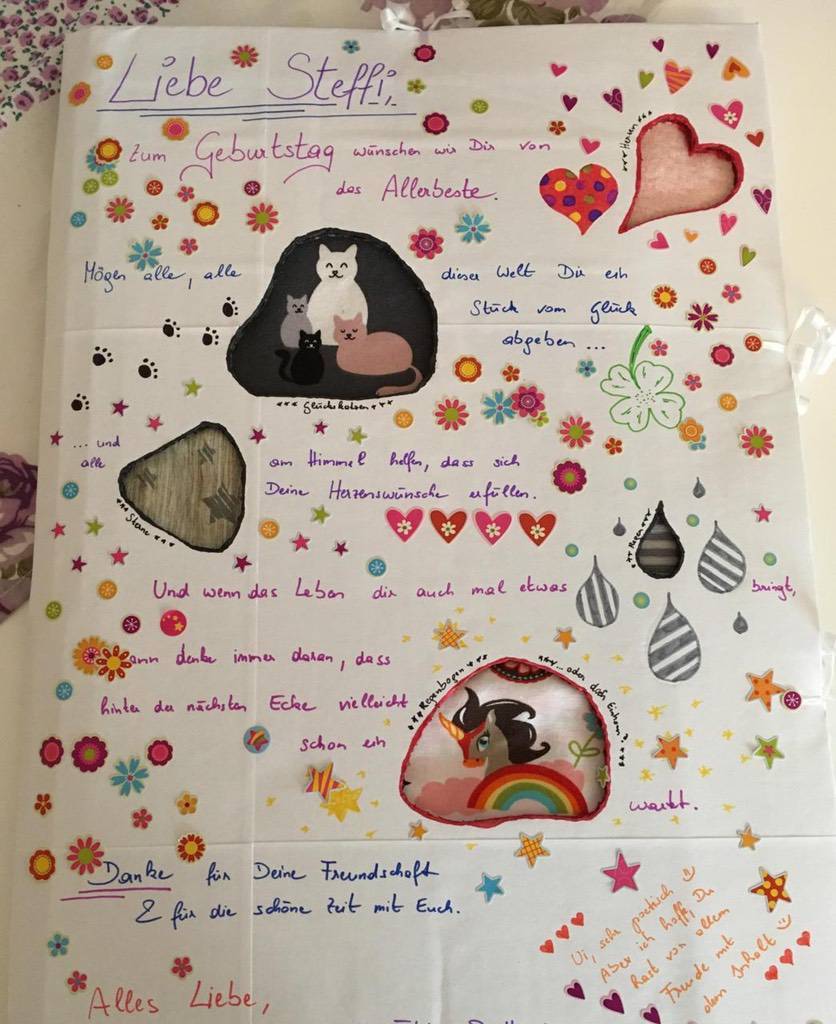 Liebe Steffi,
zum Geburtstag wünschen wir Dir von
*** Herzen
das Allerbeste.
Mögen alle, alle
*** Glückskatzen ***
dieser Welt Dir ein
Stück vom Glück
abgeben ...
... und
alle
*** Sterne ***
am Himmel helfen, dass sich
Deine Herzenswünsche erfüllen.
Und wenn das Leben dir auch mal etwas
*** Regen ***
bringt,
dann denke immer daran, dass
hinter der nächsten Ecke vielleicht
schon ein
*** Regenbogen ***
*** ... oder doch Einhorn? ***
wartet.
Danke für Deine Freundschaft
& für die schöne Zeit mit Euch.
Ui, sehr poetisch
Aber ich hoffe, Du
hast vor allem
Freude mit
dem Inhalt
Alles Liebe,